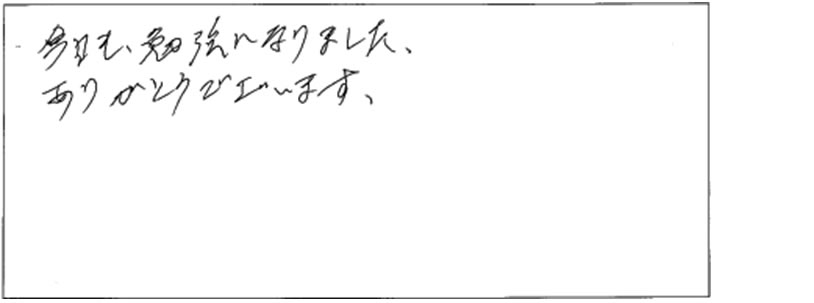 今日も、勉強になりました、
ありがとうございます、